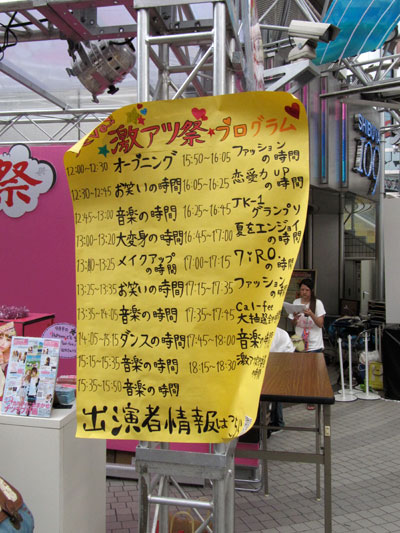 激アツ祭プログラム
12:00~12:30 オープニング
12:30~12:45 お笑いの時間
12:45~13:00 音楽の時間
13:00~13:20 大変身の時間
13:20~13:25 メイクアップの時間
13:25~13:35 お笑いの時間
13:35~14:05 音楽の時間
14:05~15:15 ダンスの時間
15:15~15:35 音楽の時間
15:35~15:50 音楽の時間
15:50~16:05 ファッションの時間
16:05~16:25 恋愛力UPの時間
16:25~16:45 JK-1グランプリ
16:45~17:00 夏をエンジョイの時間
17:00~17:15 7:RO.の時間
17:15~17:35 ファッションの
17:35~17:45 Cal-fee 大抽選会
17:45~18:00 音楽
18:15~18:30 激アツ
出演者情報は
祭
109